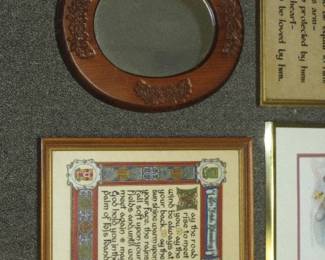 s arm-
protected by him
heart-
be loved by him.
May the road
rise to meet
you, May the
wind be always at
your back, May the
sun shine warm upon
your face, the rains
fall soft upon your
fields and until we
meet again, may
God hold you in the
palm of his hand